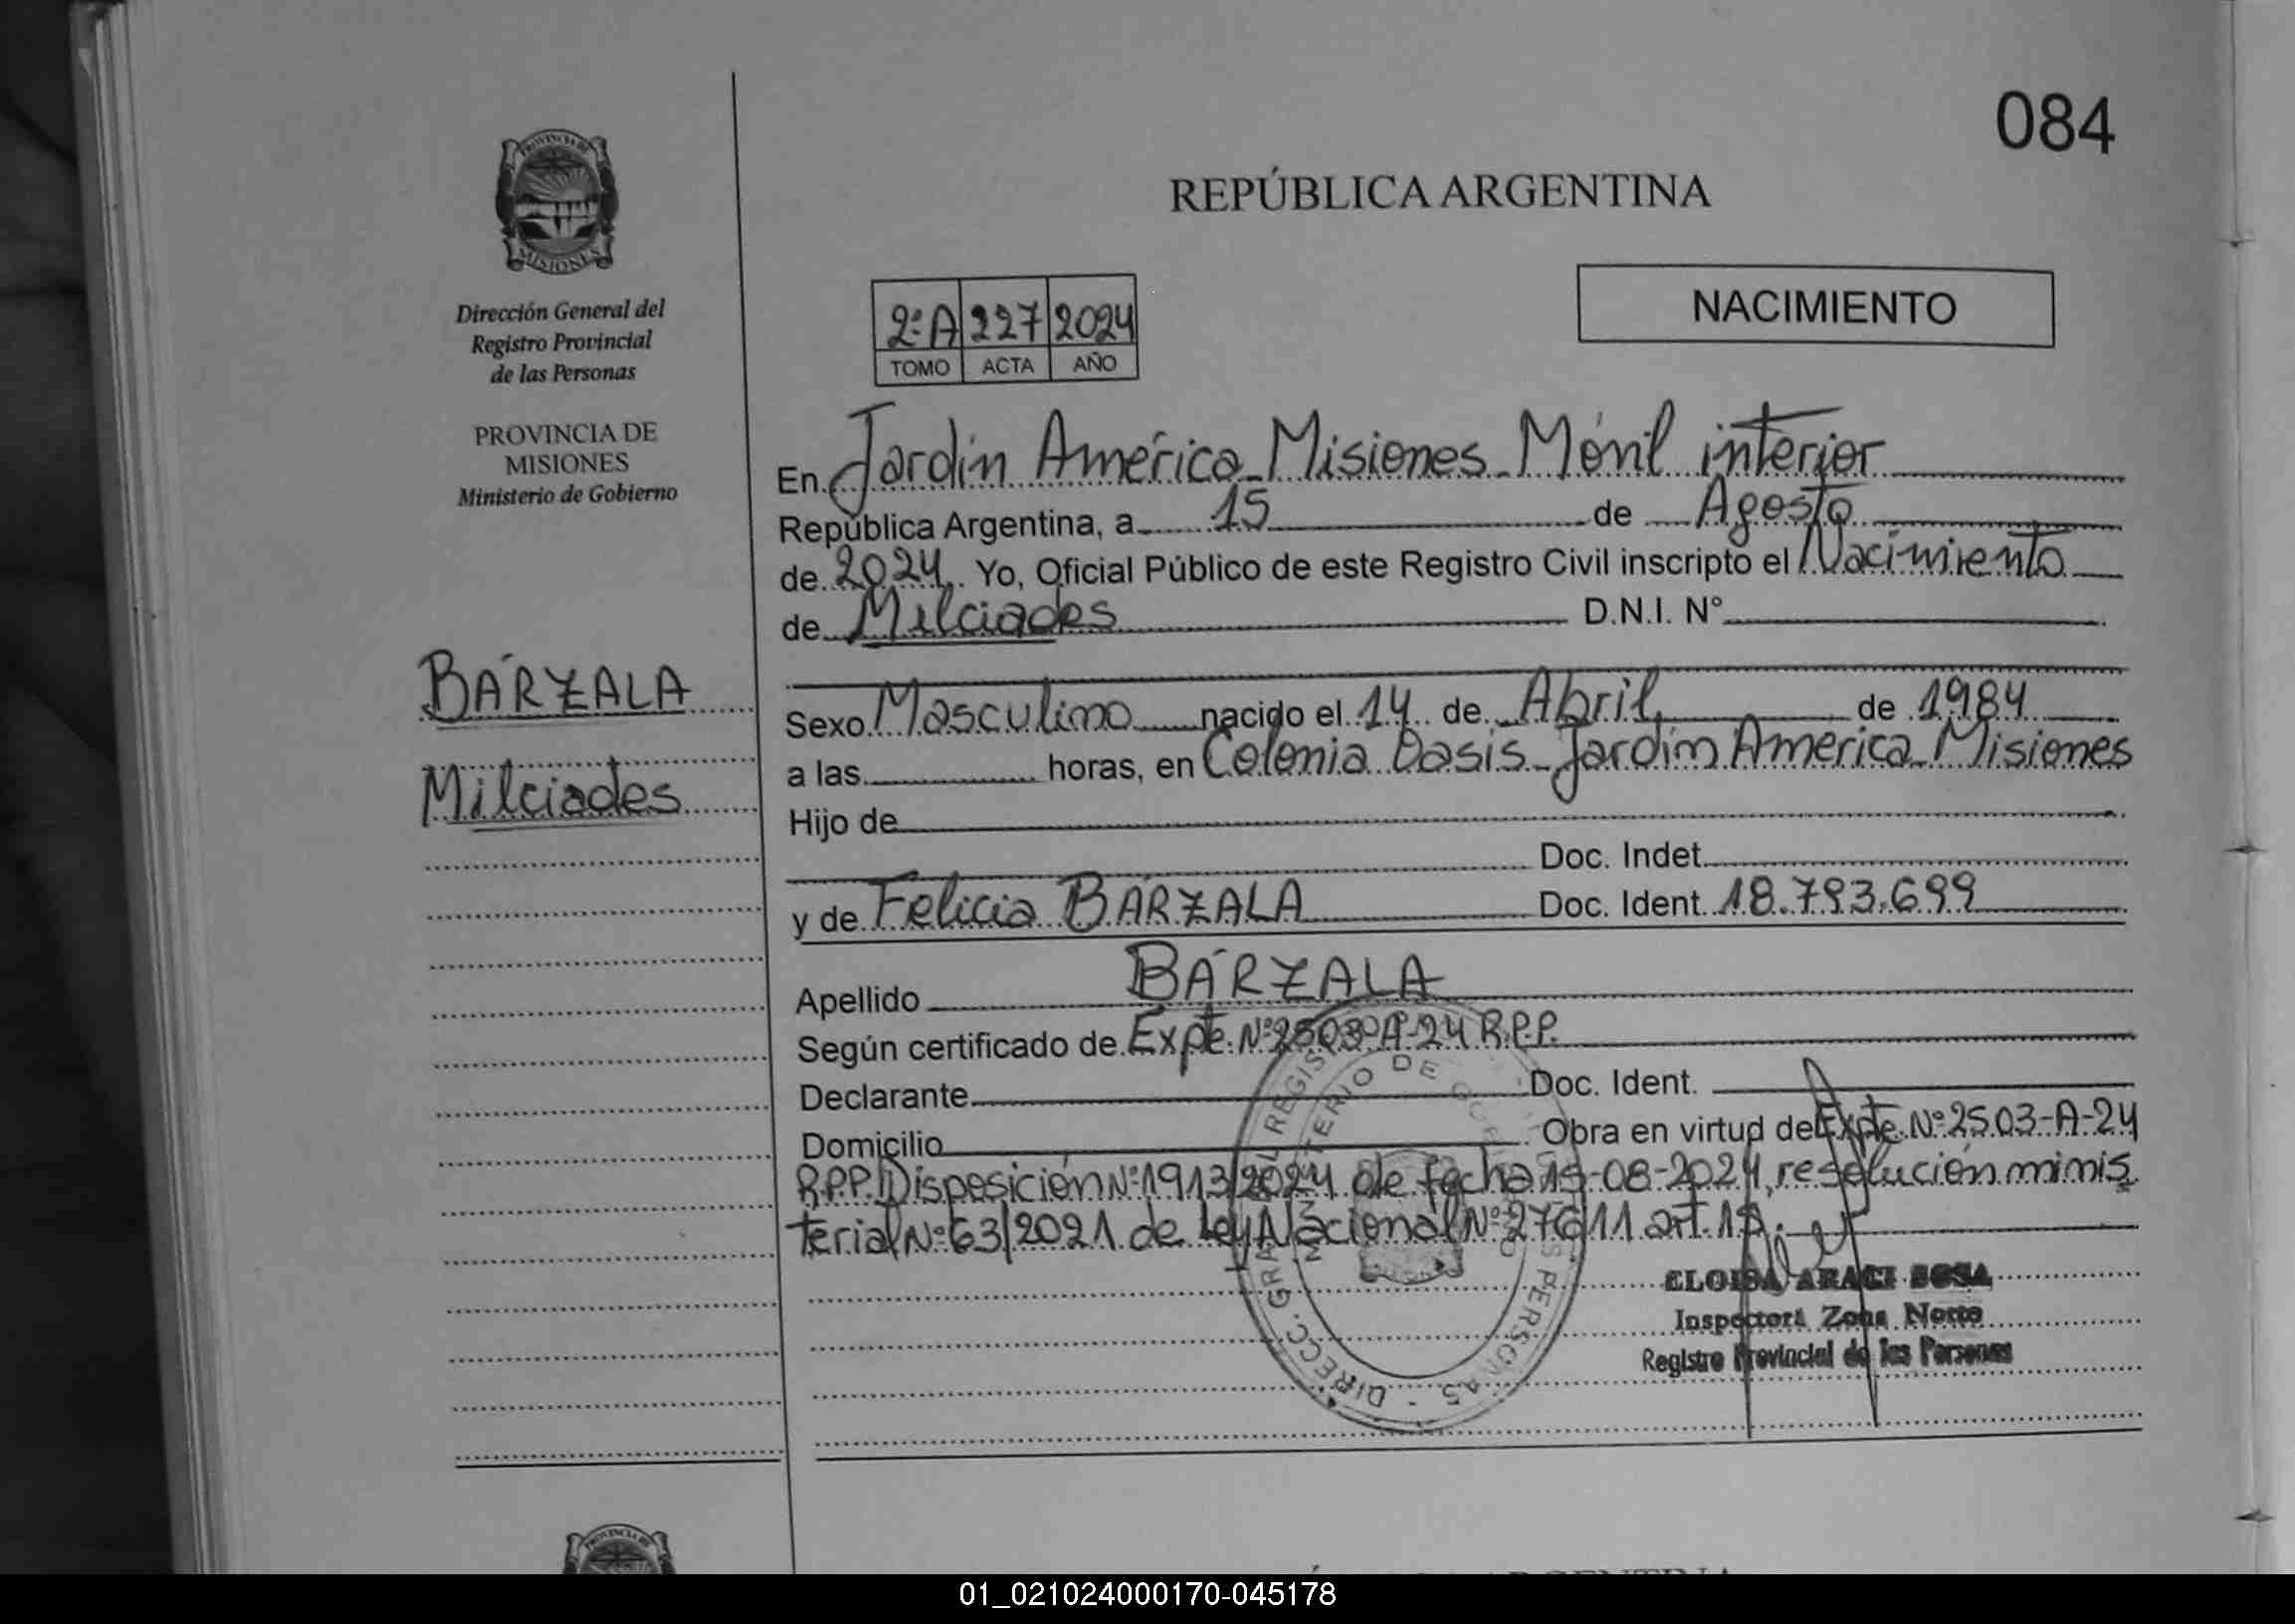 084
REPÚBLICA ARGENTINA
NACIMIENTO
PROVINCIA DE
MISIONES
Dirección General del
Registro Provincial
de las Personas
PROVINCIA DE
MISIONES
Ministerio de Gobierno
BÁRZALA
Milciades
2º A 227 2024
TOMO ACTA AÑO
En Jardín América Misiones Móvil interior
República Argentina, a 15 de Agosto
de 2024 Yo, Oficial Público de este Registro Civil inscripto el Nacimiento
de Milciades D.N.I. N°
Sexo Masculino nacido el 14 de Abril de 1984
a las horas, en Colonia Oasis Jardín América Misiones
Hijo de
Doc. Indet.
y de Felicia BÁRZALA Doc. Ident. 18.793.699
Apellido BÁRZALA
Según certificado de Expte. Nº 2503-A-24 R.P.P.
Declarante Doc. Ident.
Domicilio Obra en virtud de Expte. Nº 2503-A-24
R.P.P. Disposición Nº 1913/2024 de fecha 15-08-2024, resolución minis
terial Nº 63/2021 de Ley Nacional Nº 27611 art.
ELOISA ARACI SOSA
Inspectora Zona Norte
Registro Provincial de las Personas
PROVINCIA DE
01_021024000170-045178